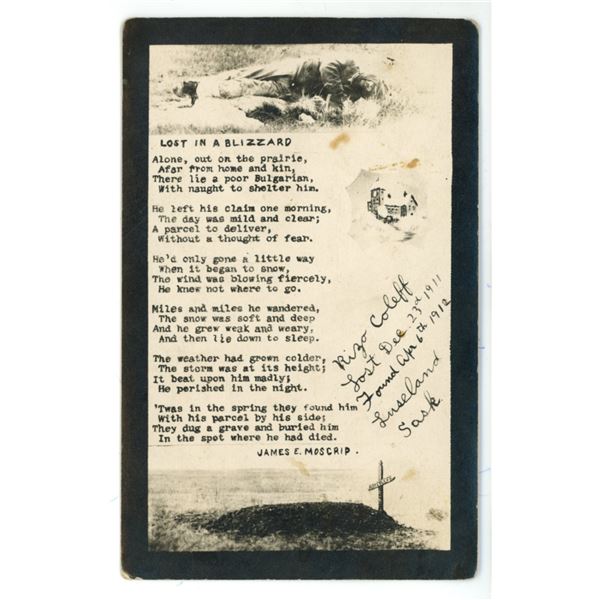 LOST IN A BLIZZARD
Alone, out on the prairie,
Afar from home and kin,
There lie a poor Bulgarian,
With naught to shelter him.
He left his claim one morning,
The day was mild and clear;
A parcel to deliver,
Without a thought of fear.
He'd only gone a little way
When it began to snow,
The wind was blowing fiercely,
He knew not where to go.
Miles and miles he wandered,
The snow was soft and deep
And he grew weak and weary,
And then lie down to sleep.
The weather had grown colder,
The storm was at its height;
It beat upon him madly;
He perished in the night.
'Twas in the spring they found him
With his parcel by his side;
They dug a grave and buried him
In the spot where he had died.
JAMES E. MOSGRIP.
Rizo Coleff
Lost Dec 23rd 1911
Found Apr 6th 1912
Luseland
Sask